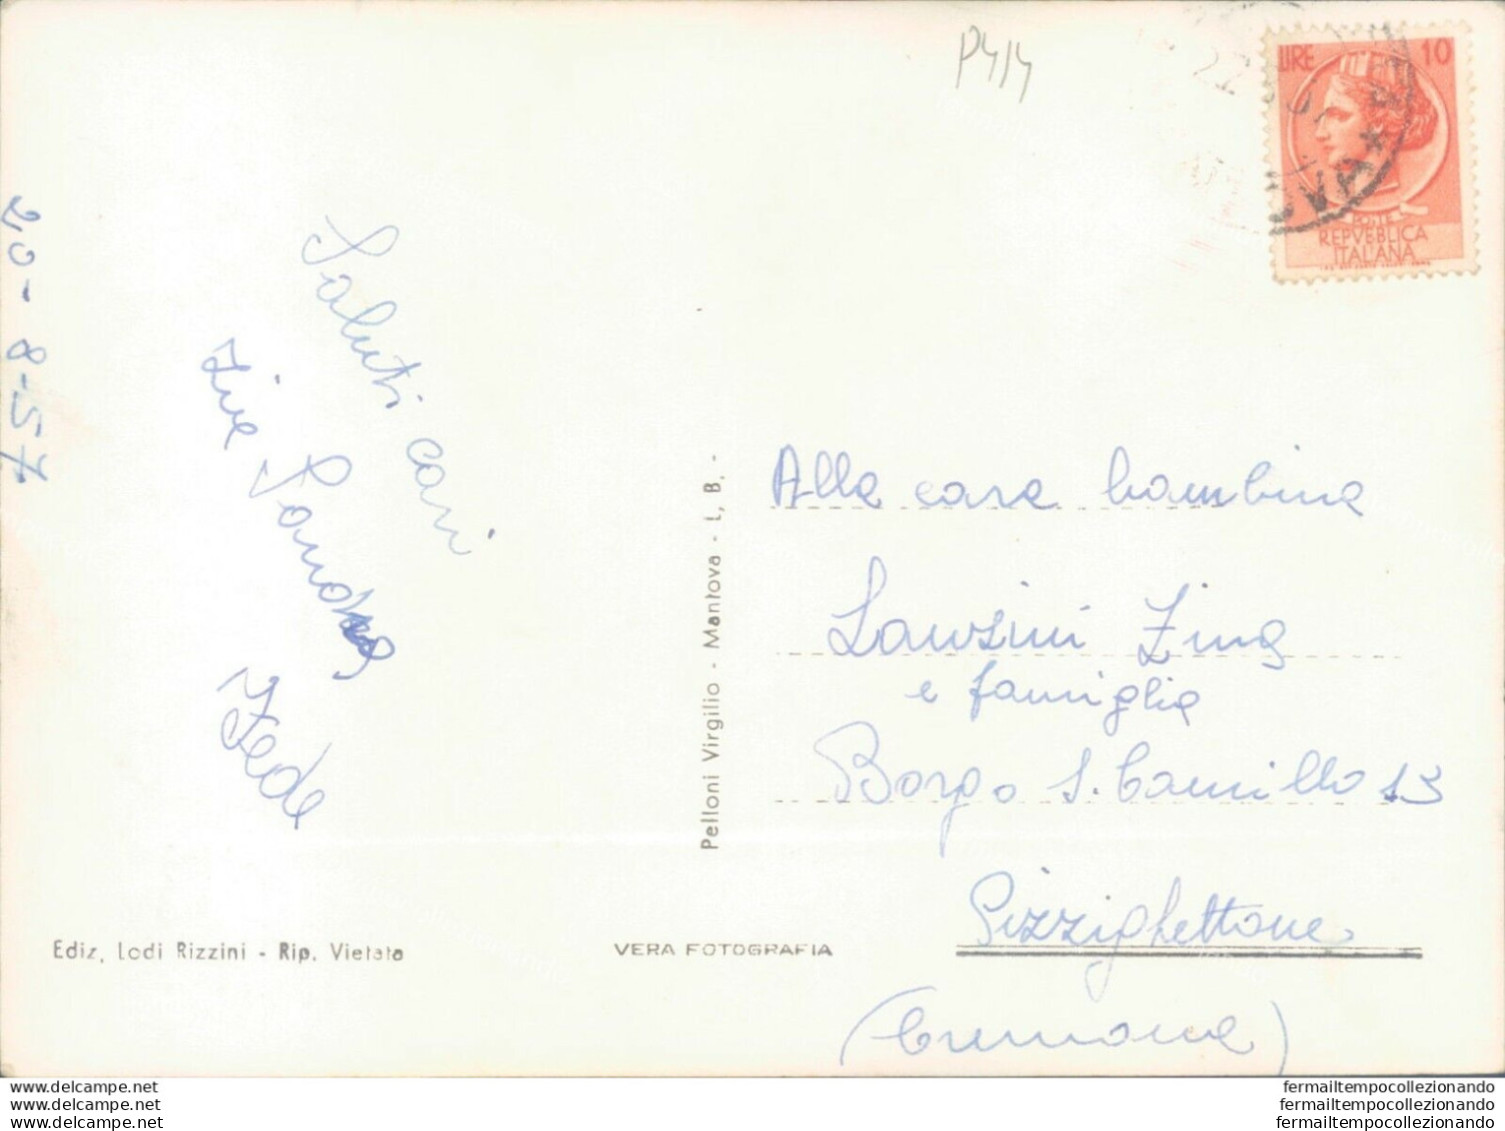 P414
LIRE 10
POSTE
REPVBBLICA
ITALIANA
20-8-57
Saluti cari
Zia Sandra
Fede
Pelloni Virgilio - Mantova - L. B. -
Alla cara bambina
Lanzini Zina
e famiglia
Borgo S. Camillo 13
Pizzighettone
(Cremona)
Ediz. Lodi Rizzini - Rip. Vietata
VERA FOTOGRAFIA
delcampe.net
delcampe.net
delcampe.net
fermailtempocollezionando
fermailtempocollezionando
fermailtempocollezionando